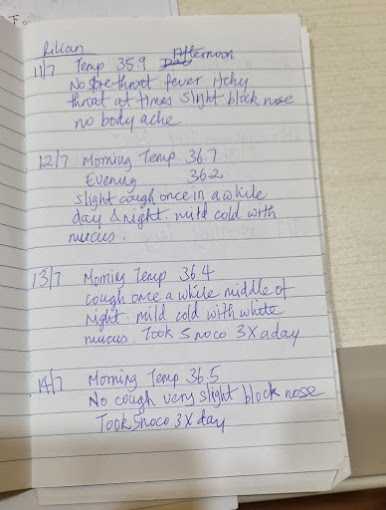 下。
Rilian
11/7 Temp 35.9 Afternoon
No sore throat fever itchy
throat at times slight block nose
no body ache
12/7 Morning Temp 36.7
Evening 36.2
slight cough once in a while
day & night. mild cold with
mucus.
13/7 Morning Temp 36.4
cough once a while middle of
night. mild cold with white
mucus. Took 5 noco 3X a day
14/7 Morning Temp 36.5
No cough very slight block nose
Took 5noco 3 X day